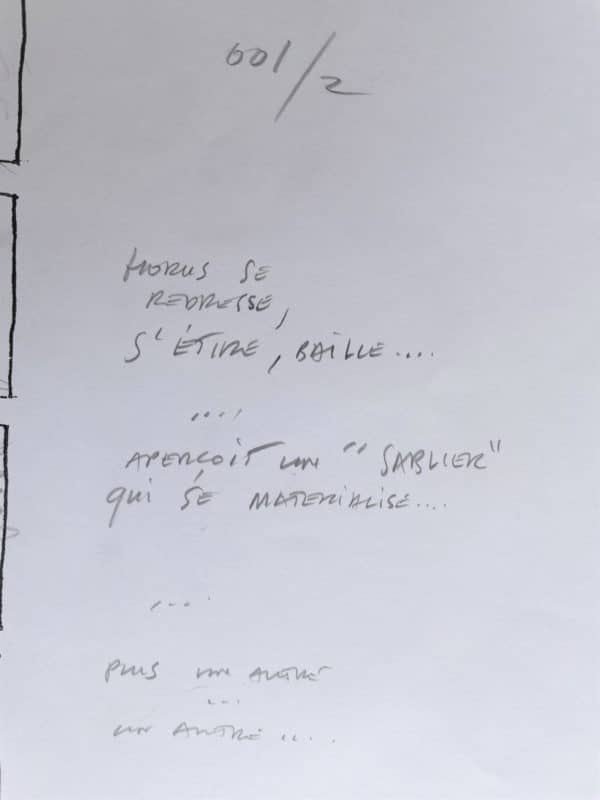 001/2
HORUS SE
REDRESSE,
S'ÉTIRE, BAÎLLE....
....
APERÇOIT UN "SABLIER"
qui SE MATERIALISE....
....
PUIS UN AUTRE
...
UN AUTRE.....